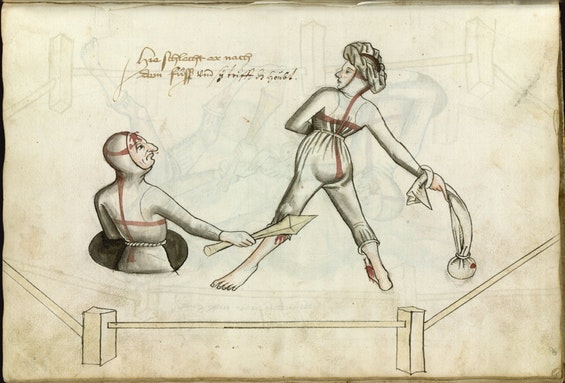 Hie schlecht er nach
dem fuͦß und sy trifft in houbt.